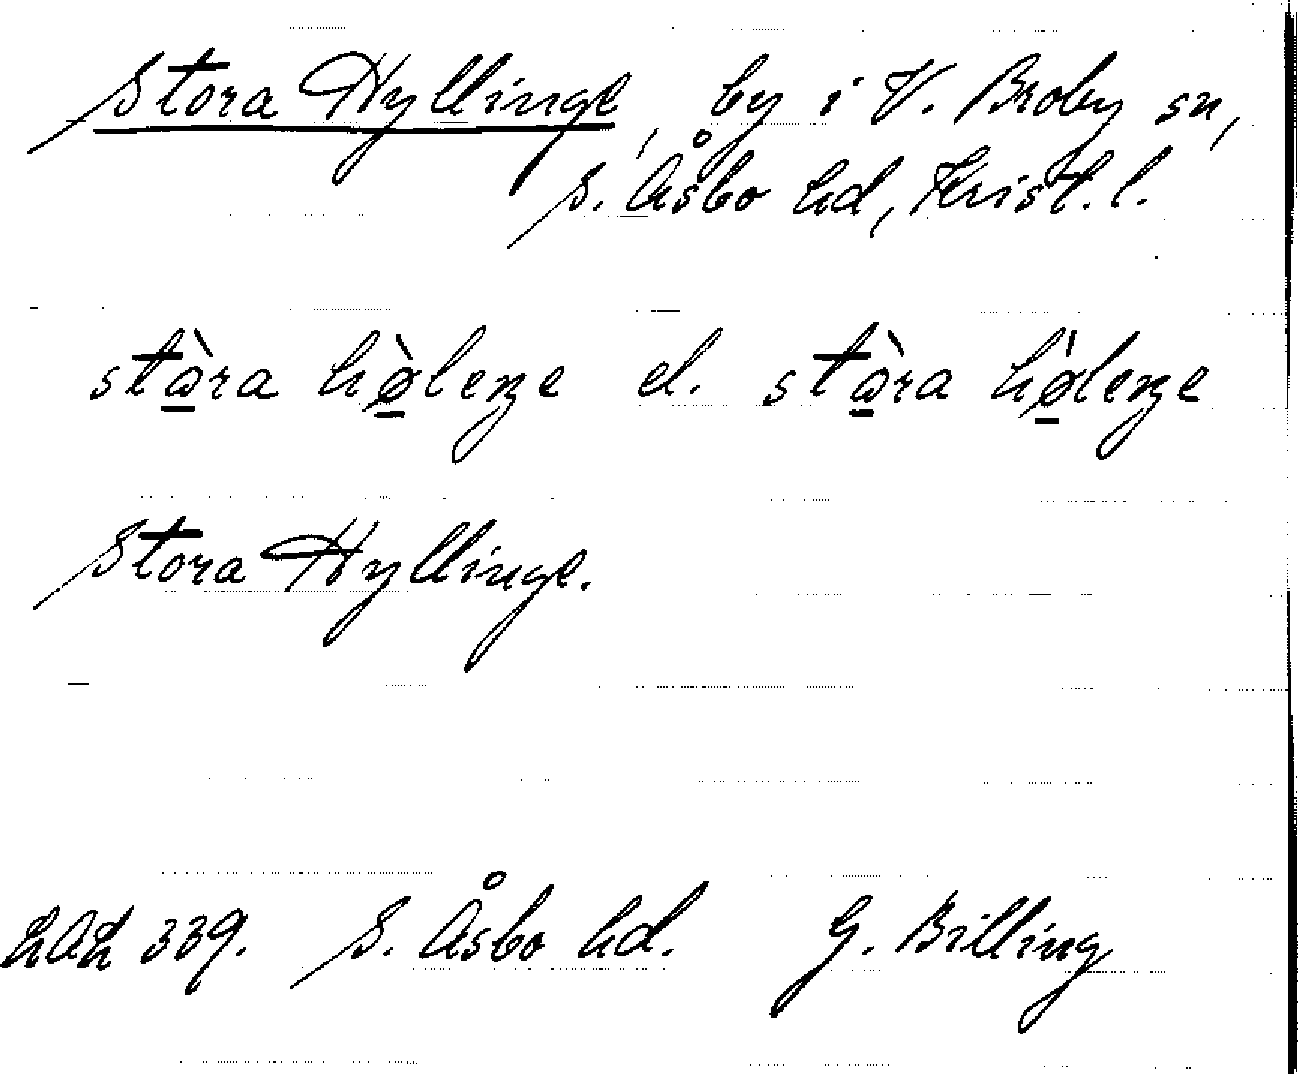 Stora Hyllinge, by i V. Broby sn,
S. Åsbo hd, Krist. l.
stò̠ra hø̠̀leŋe el. stò̠ra hǿ̠leŋe
Stora Hyllinge.
339. S. Åsbo hd. G. Billing